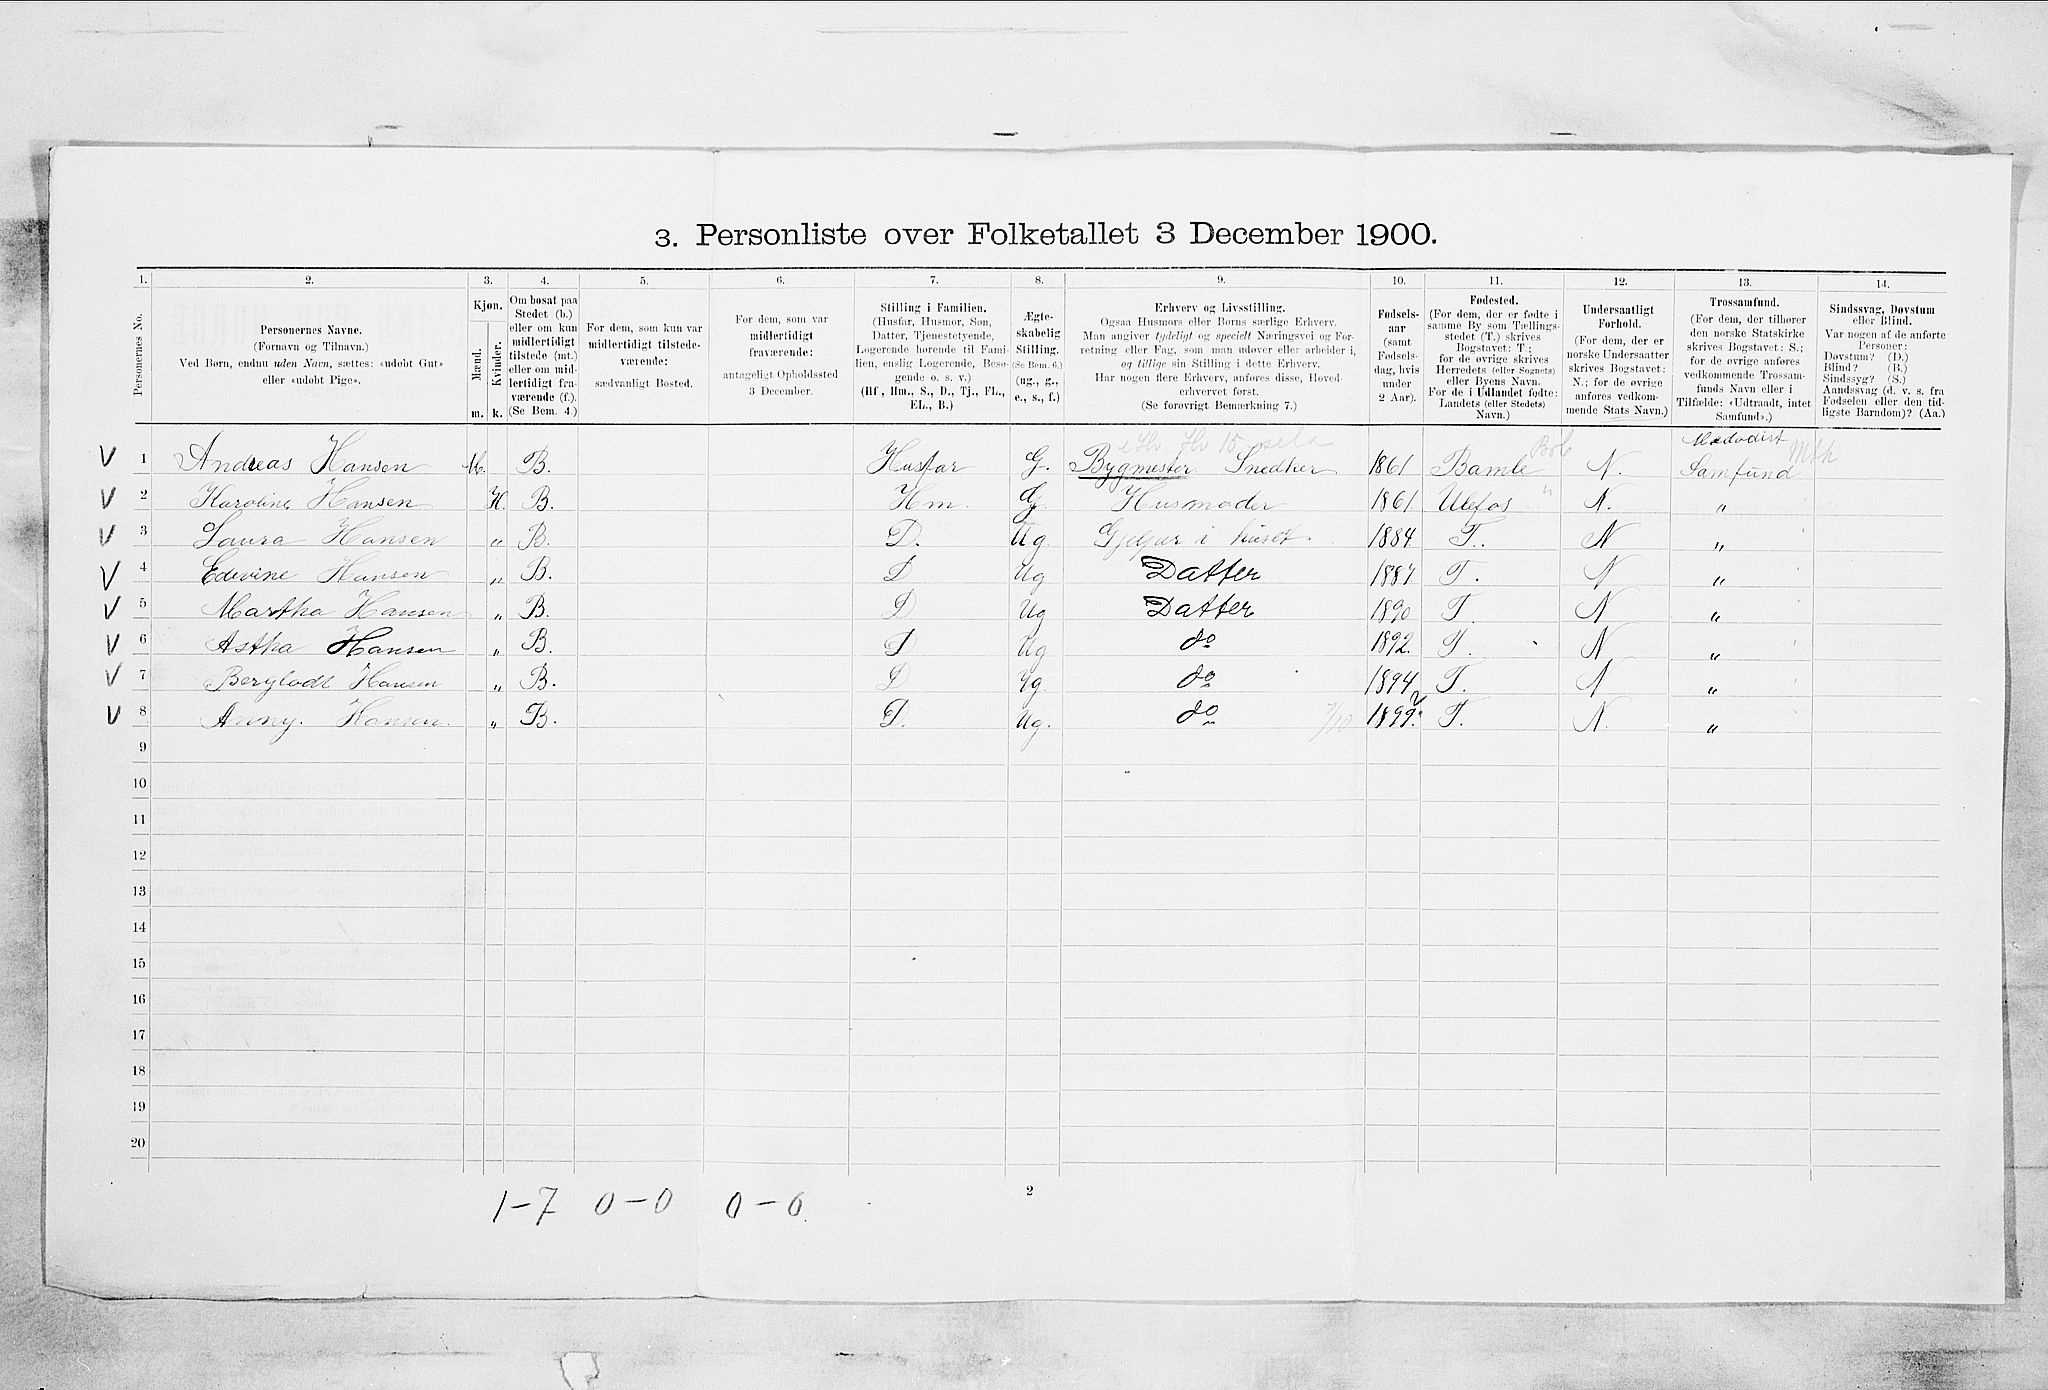 3. Personliste over Folketallet 3 December 1900.
1. 2. 3. 4. 5. 6. 7. 8. 9. 10. 11. 12. 13. 14.
Personernes No.
Personernes Navne.
(Fornavn og Tilnavn.)
Ved Børn, endnu uden Navn, sættes: «udøbt Gut»
eller «udøbt Pige».
Kjøn.
Mænd.
Kvinder.
m. k.
Om bosat paa
Stedet (b.)
eller om kun
midlertidigt
tilstede (mt.)
eller om mid-
lertidigt fra-
værende (f.).
(Se Bem. 4.)
For dem, som kun var
midlertidigt tilstede-
værende:
sædvanligt Bosted.
For dem, som var
midlertidigt
fraværende:
antageligt Opholdssted
3 December.
Stilling i Familien.
(Husfar, Husmor, Søn,
Datter, Tjenestetyende,
Logerende hørende til Fami-
lien, enslig Logerende, Besø-
gende o. s. v.)
(Hf, Hm., S., D., Tj., FL.,
EL., B.)
Ægte-
skabelig
Stilling.
(Se Bem. 6.)
(ug., g.,
e., s., f.)
Erhverv og Livsstilling.
Ogsaa Husmors eller Børns særlige Erhverv.
Man angiver tydeligt og specielt Næringsvei og For-
retning eller Fag, som man udøver eller arbeider i,
og tillige sin Stilling i dette Erhverv.
Har nogen flere Erhverv, anføres disse, Hoved-
erhvervet først.
(Se forøvrigt Bemærkning 7.)
Fødsels-
aar
(samt
Fødsels-
dag, hvis
under
2 Aar).
Fødested.
(For dem, der er fødte i
samme By som Tællings-
stedet (T.) skrives
Bogstavet: T;
for de øvrige skrives
Herredets (eller Sognets)
eller Byens Navn.
For de i Udlandet fødte:
Landets (eller Stedets)
Navn.)
Undersaatligt
Forhold.
(For dem, der er
norske Undersaatter
skrives Bogstavet:
N.; for de øvrige
anføres vedkom-
mende Stats Navn.)
Trossamfund.
(For dem, der tilhører
den norske Statskirke
skrives Bogstavet: S.;
for de øvrige anføres
vedkommende Trossam-
funds Navn eller i
Tilfælde: «Udtraadt, intet
Samfund».)
Sindssvag, Døvstum
eller Blind.
Var nogen af de anførte
Personer:
Døvstum? (D.)
Blind? (B.)
Sindssyg? (S.)
Aandssvag (d. v. s. fra
Fødselen eller den tid-
ligste Barndom)? (Aa.)
V 1 Andreas Hansen M. B. Husfar G. Bygmester Snedker 1861 Bamle N. Metodist Samfund Mth
V 2 Karoline Hansen K. B. Hm. G. Husmoder 1861 Ulefos " N. "
V 3 Laura Hansen " B. D. Ug. i huset 1884 T. N "
V 4 Edevine Hansen " B. D Ug Datter 1887 T. N "
V 5 Martha Hansen " B. D Ug Datter 1890 T. N "
V 6 Astha Hansen " B. D Ug do 1892. T. N "
V 7 Hansen " B. D Ug. do 1894 T. N "
V 8 Anny. Hansen. " B. D. Ug. do 7/10 1899. T. N. "
9
10
11
12
13
14
15
16
17
18
19
20
1-7 0-0 0-0
2